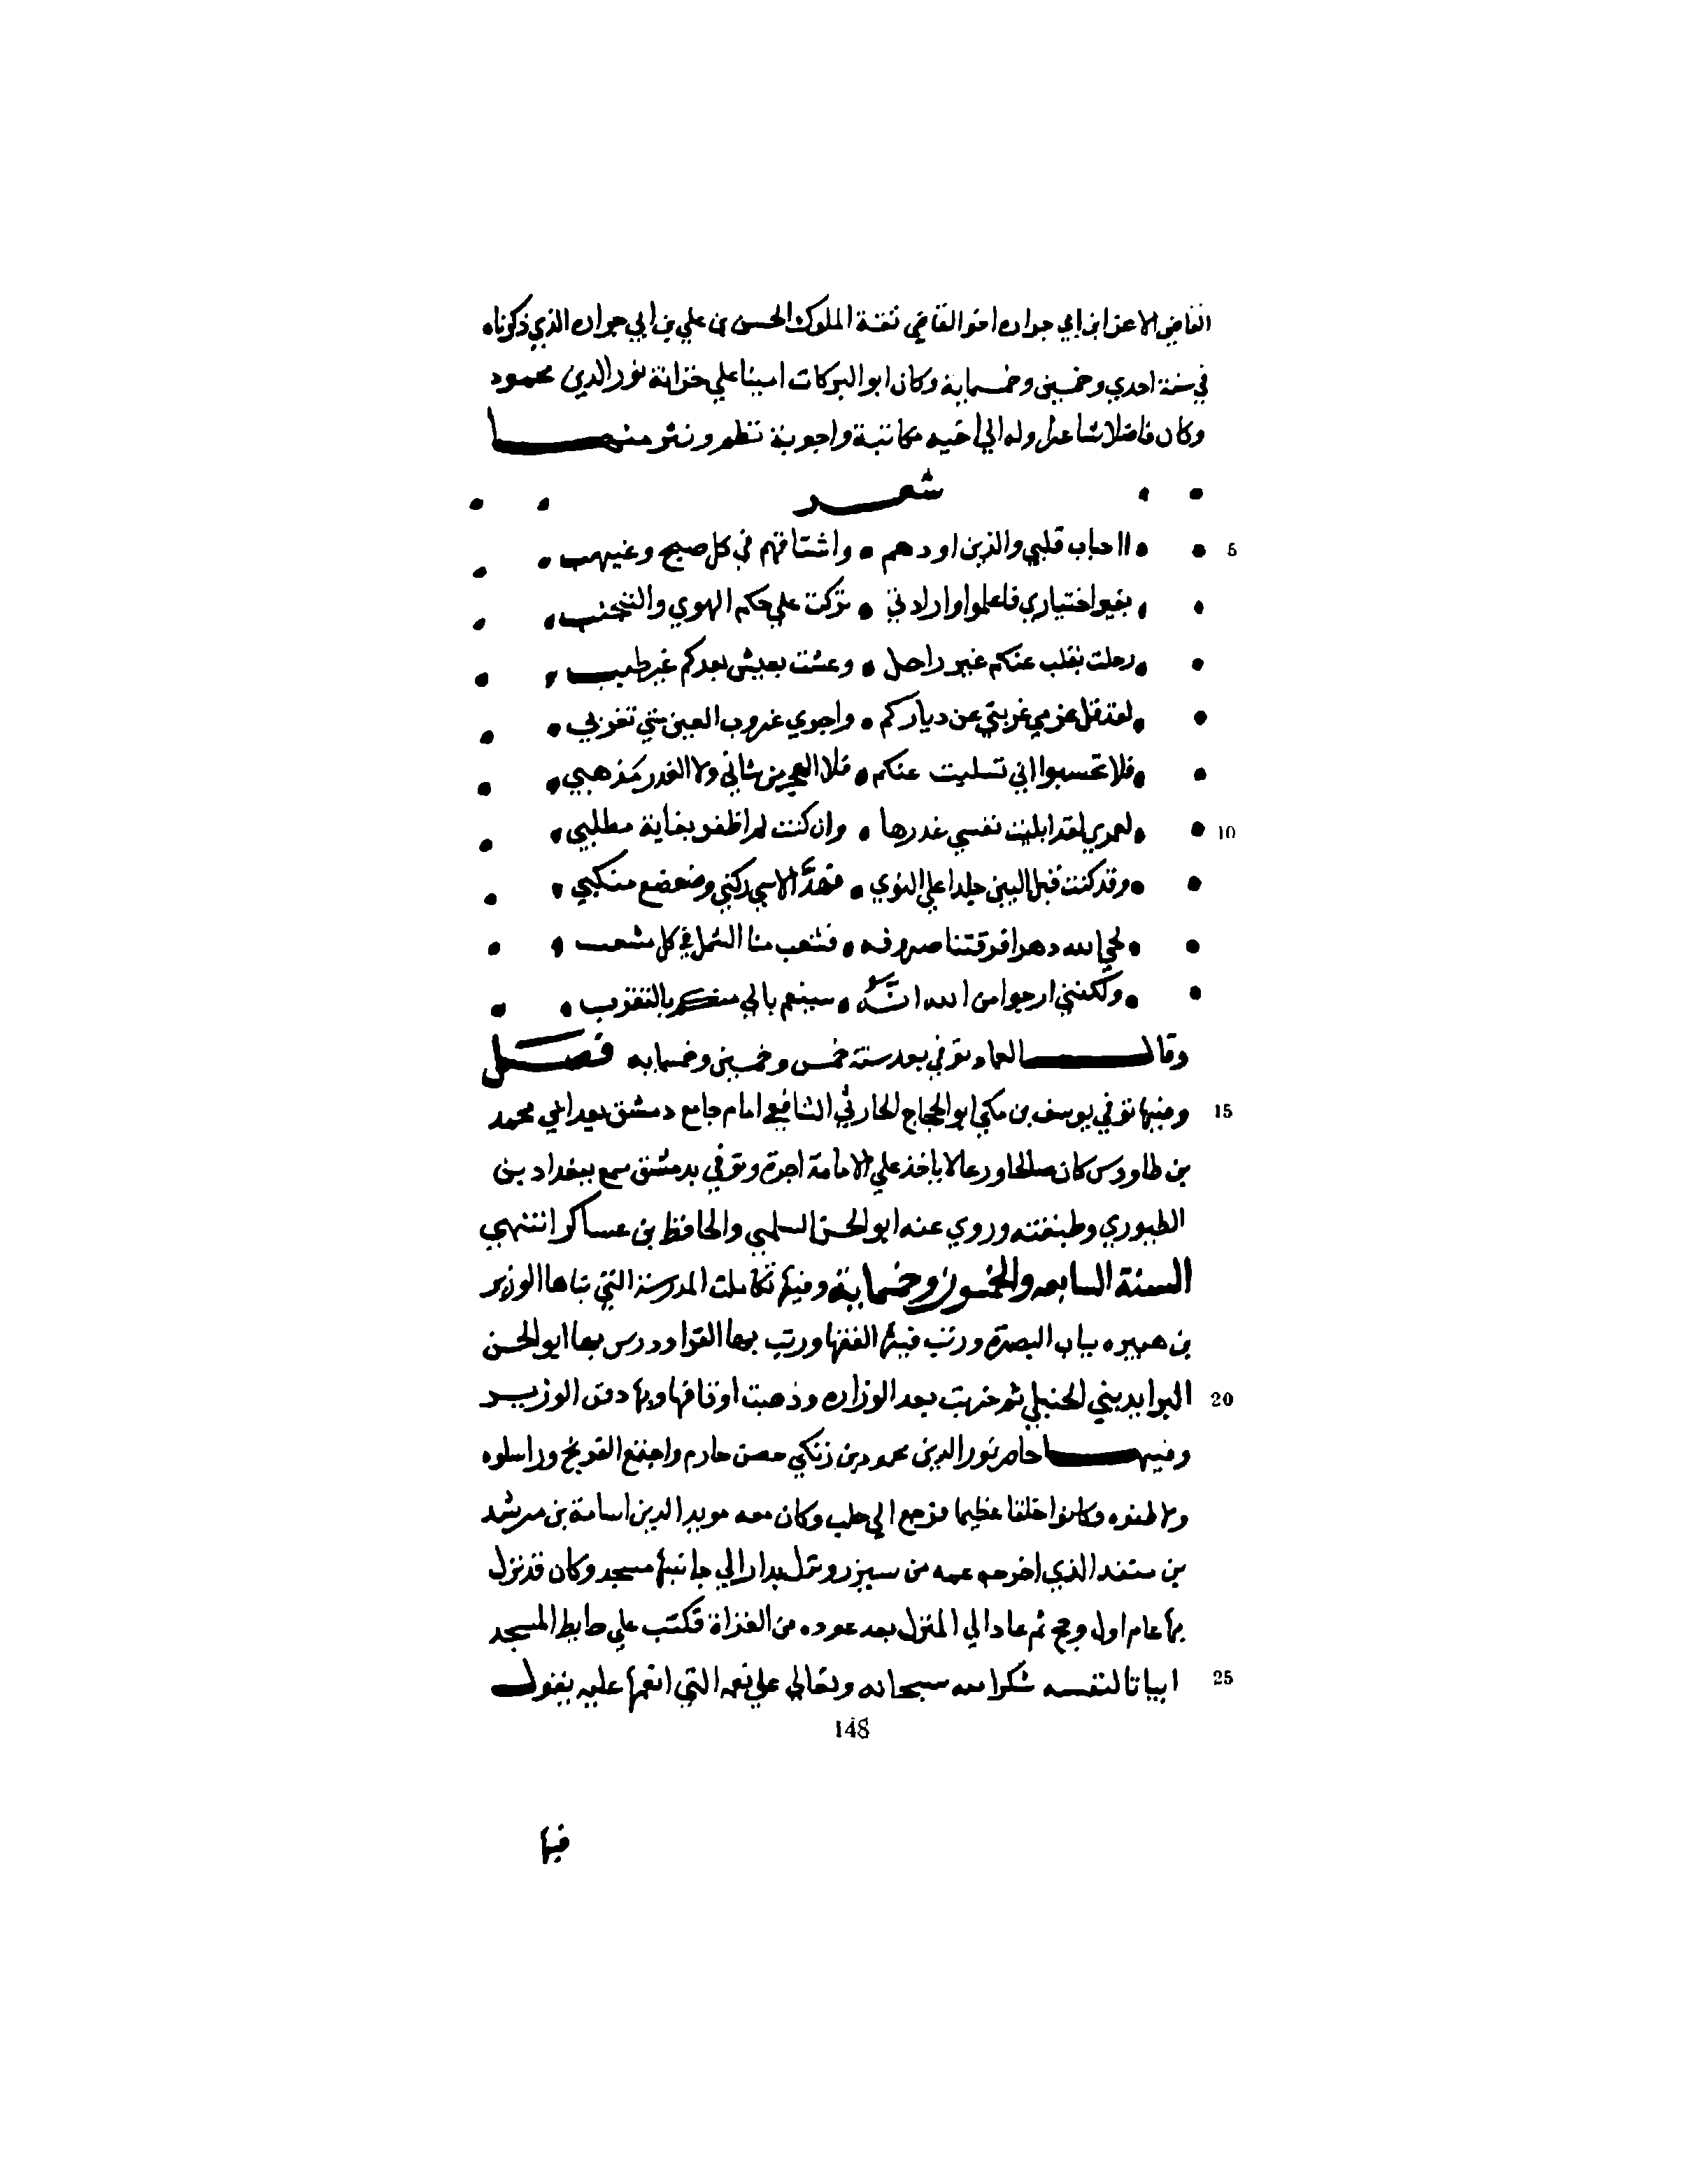 القاضي الاعز ابن ابي جراده اخو القاضي ثقة الملوك الحسن بن علي بن ابي جراده الذي ذكرناه
في سنة احدي وخمسين وخمسماية وكان ابو البركات امينا علي خزانة نور الدين محمود
وكان فاضلا شاعرا وله الي اخيه مكاتبة واجوبة نظم ونثر منها
شعر
5 ااحباب قلبي والذين اودهم • واشتاقهم في كل صبح وغيهب
بغير اختياري فاعلموا وارادتي • تركت علي حكم الهوي والتجنب
رحلت بقلب عنكم غير راحل • وعشت بعيش بعدكم غير طيب
لقد فل عزمي غربتي عن دياركم • واجري غروب العين مني تغربي
فلا تحسبوا اني تسليت عنكم • فلا الهجر من شاني ولا الغدر مذهبي
10 لعمري لقد ابليت نفسي غدرها • وان كنت لم اظفر بغاية مطلبي
وقد كنت قبل البين جلدا علي النوي • فهدَّ الاسي ركني وضعضع منكبي
لحي الله دهرا فرقتنا صروفه • فشعب منا الشمل في كل مشعب
ولكنني ارجوا من الله انَّه • سينعم بالي منكم بالتقرب
وقال العماد توفي بعد سنة خمس وخمسين وخمسمايه فصل
15 ومنها توفي يوسف بن مكي ابو الحجاج الحارثي الشافعي امام جامع دمشق بعد ابي محمد
بن طاودس كان صالحا ورعا لا ياخذ علي الامامة اجرة وتوفي بدمشق سمع ببغداد بن
الطيوري وطبقته وروي عنه ابو الحسن السلمي والحافظ بن عساكر انتهي
السنة السابعه والخمسون وخمسماية وفيها تكاملت المدرسة التي بناها الوزير
بن هبيره بباب البصرة ورتب فيها الفقها ورتب بها القرا ودرس بها ابو الحسن
20 البرابديني الحنبلي ثم خربت بعد الوزاره وذهبت اوقافها وبها دفن الوزير
وفيها حاصر نور الدين محمود بن زنكي حصن حارم واجتمع الفرنج وراسلوه
ولاطفوه وكانوا خلقا عظيما فرجع الي حلب وكان معه مويد الدين اسامة بن مرشد
بن منقد الذي اخرجه عمه من سيزر ونزل بدار الي جانبها مسجد وكان قد نزل
بها عام اول وحج ثم عاد الي المنزل بعد عوده من الغزاة فكتب علي حايط المسجد
25 ابياتا لنفسه شكرا لله سبحانه وتعالي علي نعمه التي انعمها عليه بقول
148
فيها